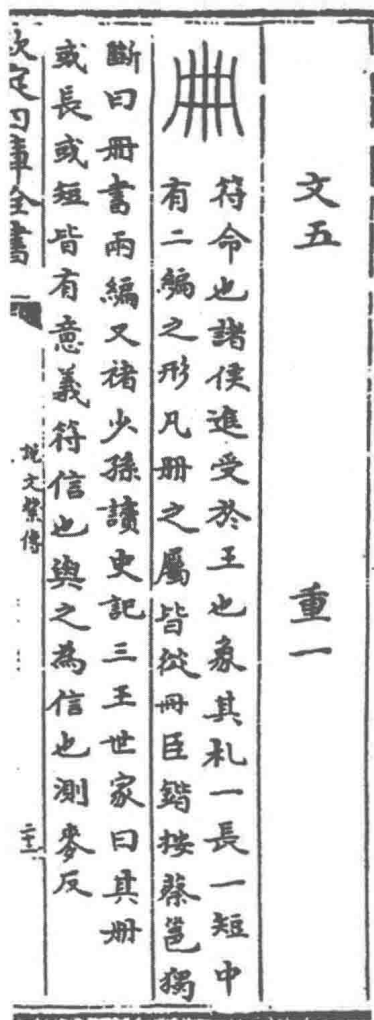 文五 重一
符命也諸侯進受於王也象其札一長一短中
有二編之形凡冊之屬皆從冊臣鍇按蔡邕獨
斷曰冊書兩編又禇少孫讀史記三王世家曰其冊
或長或短皆有意義符信也與之為信也測麥反
欽定四庫全書
說文繫傳